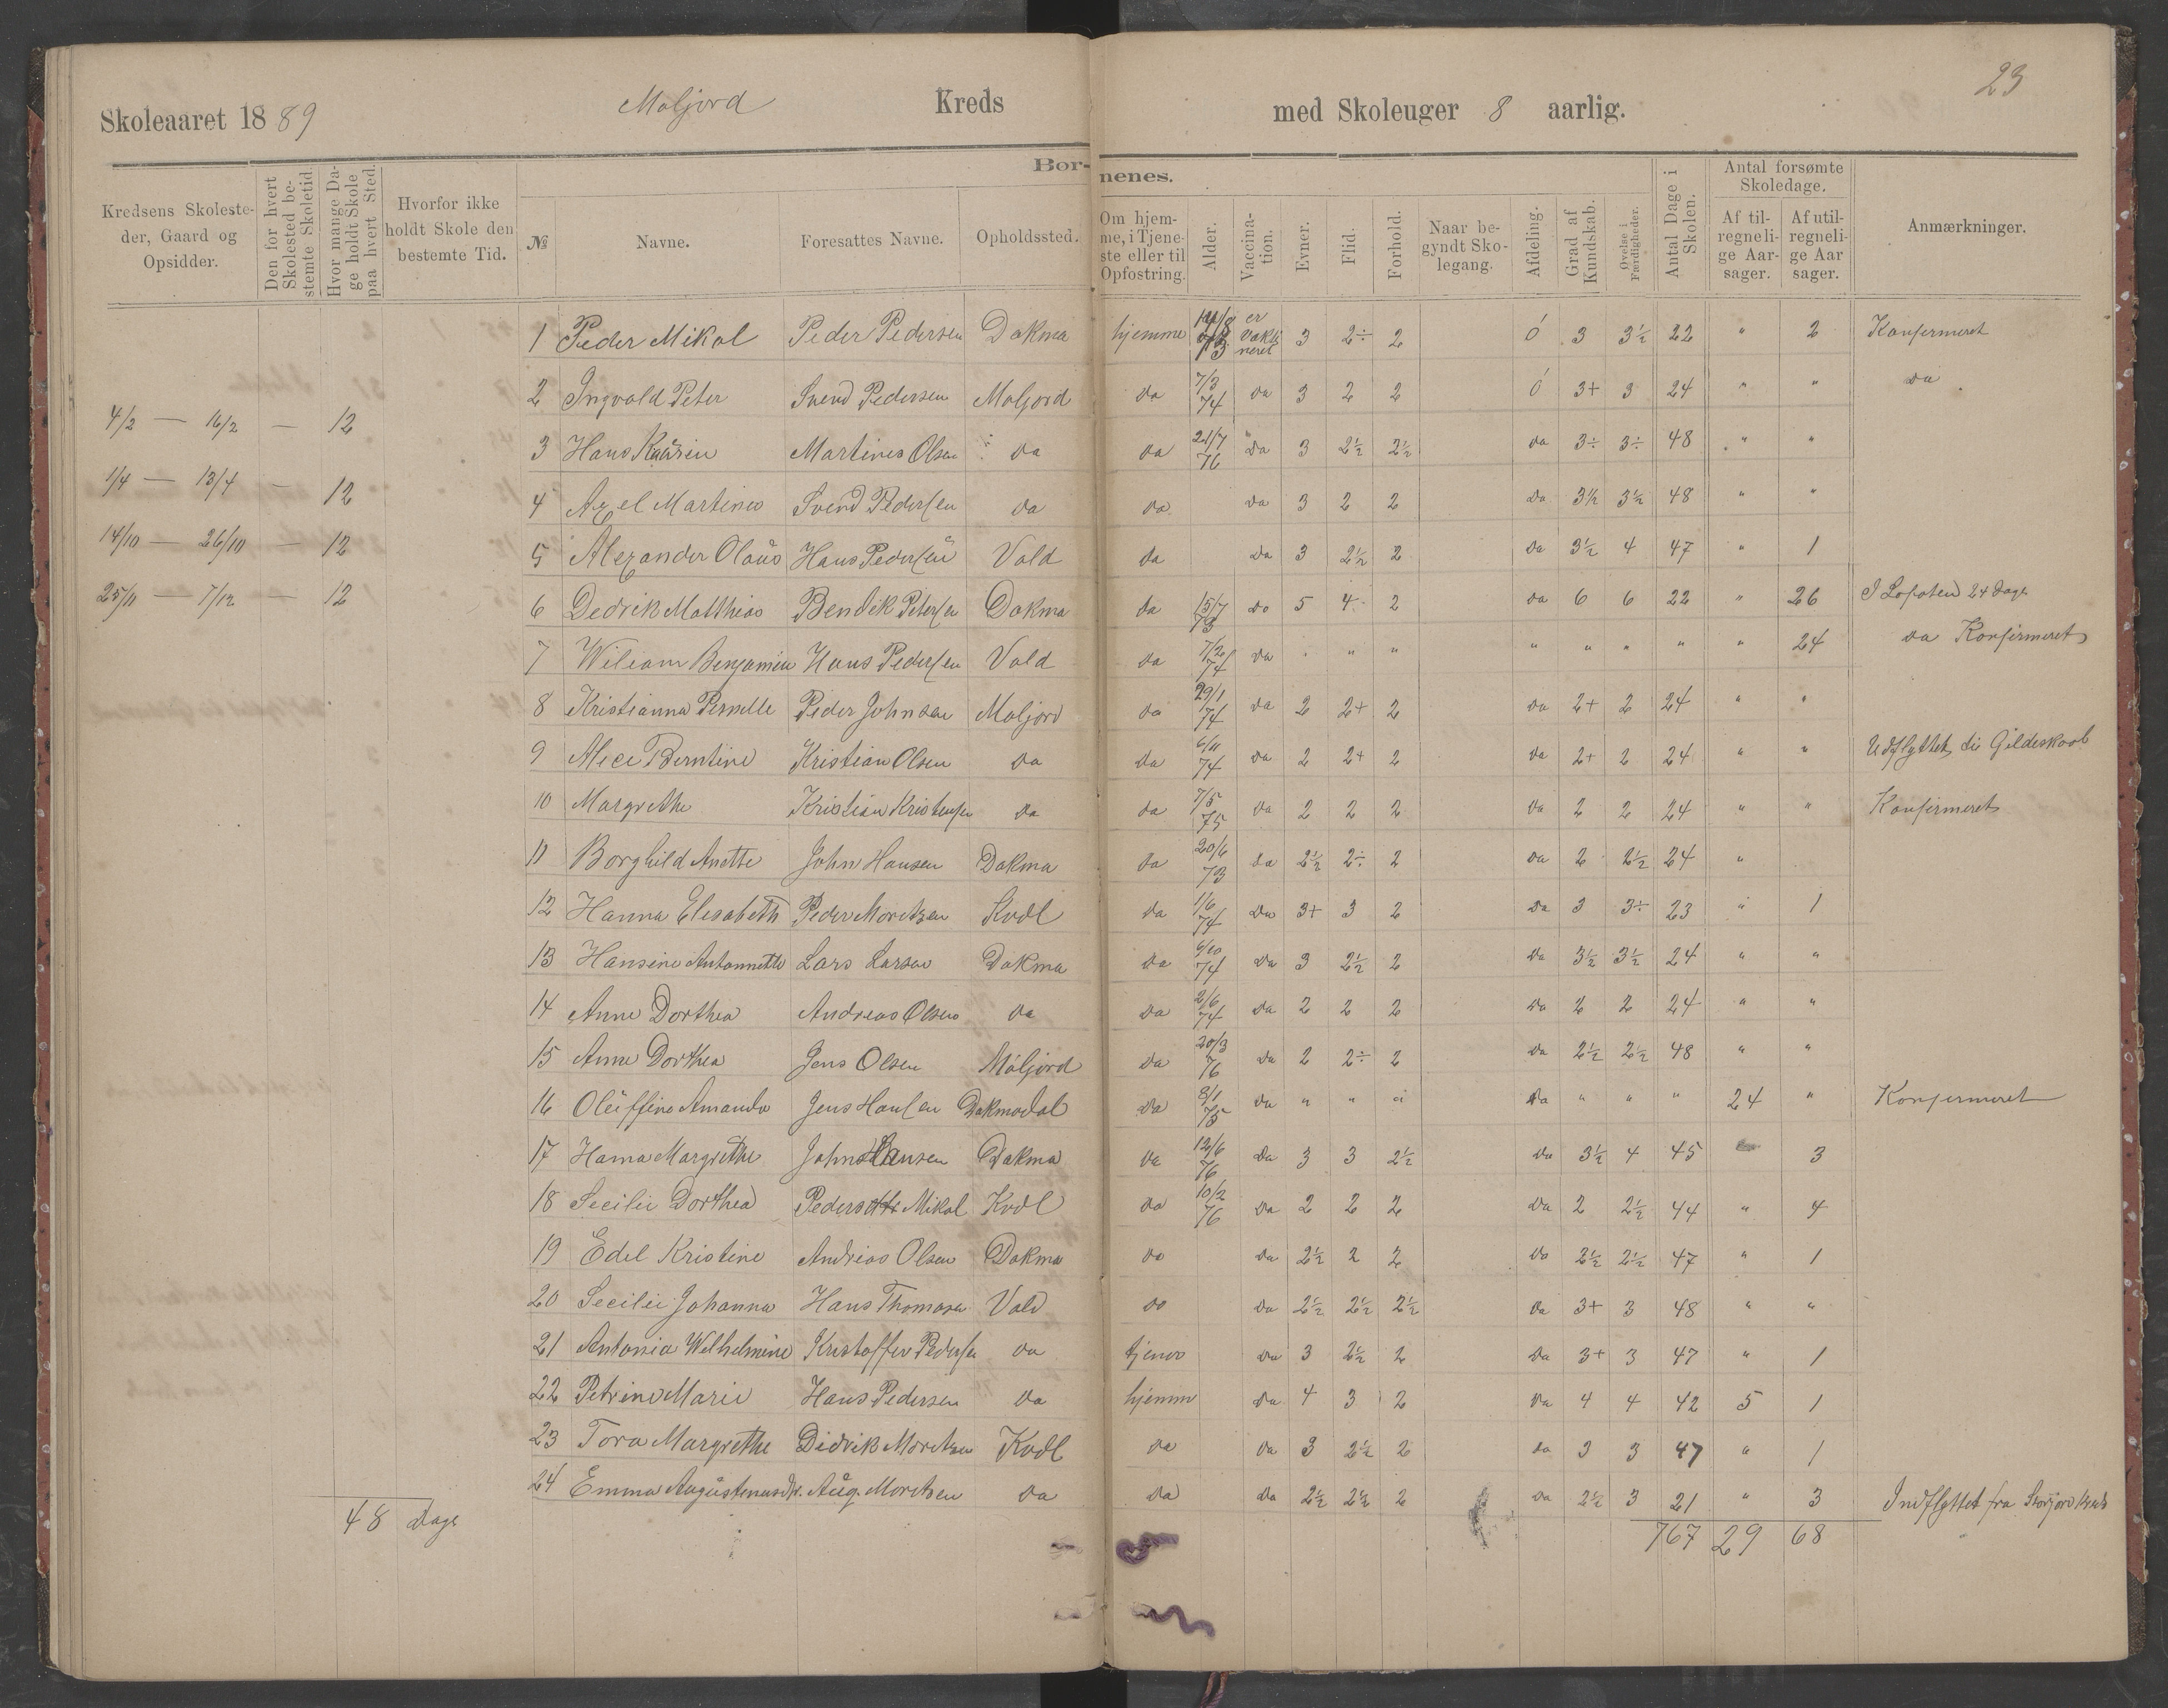 23
Skoleaaret 1889 Moljord Kreds med Skoleuger 8 aarlig.
Kredsens Skolesteder, Gaard og Opsidder.
Den for hvert Skolested bestemte Skoletid.
Hvor mange Dage holdt Skole paa hvert Sted.
Hvorfor ikke holdt Skole den bestemte Tid.
Børnenes.
№
Navne.
Foresattes Navne.
Opholdssted.
Om hjemme, i Tjeneste eller til Opfostring.
Alder.
Vaccination.
Evner.
Flid.
Forhold.
Naar begyndt Skolegang.
Afdeling.
Grad af Kundskab.
Øvelse i Færdigheder.
Antal Dage i Skolen.
Antal forsømte Skoledage.
Af tilregnelige Aarsager.
Af utilregnelige Aarsager.
Anmærkninger.
4/2 — 16/2 — 12
1/4 — 13/4 — 12
14/10 — 26/10 — 12
25/11 — 7/12 — 12
48 Dage
1 Peder Mikal Peder Pedersen Dokma hjemme er Vaksineret 3 2÷ 2 Ó 3 3½ 22 " 2 Konfermeret
2 Ingvald Peter Svend Pedersen Moljord do 7/3 74 do 3 2 2 Ó 3+ 3 24 " " do
3 Hans Kaarin Martines Olsen do do 21/7 76 do 3 2½ 2½ do 3÷ 3÷ 48 " "
4 Axel Martines Svend Pedersen do do do 3 2 2 do 3½ 3½ 48 " "
5 Alexander Olaus Hans Pedersen Vold do do 3 2½ 2 do 3½ 4 47 " 1
6 Dedrik Matthias Bendik Petersen Dokma do 15/7 73 do 5 4 2 do 6 6 22 " 26 I Lofoten 24 Dage
7 Wiliam Benjamin Hans Pedersen Vold do 7/2 74 do " " " " " " " " 24 do Konfirmeret
8 Kristianna Pernelle Peder Johnsen Moljord do 29/1 74 do 2 2+ 2 do 2+ 2 24 " "
9 Alece Berntine Kristian Olsen do do 6/11 74 do 2 2+ 2 do 2+ 2 24 " " Udflyttet til Gildeskaal
10 Margrethe Kristian Kristensen do do 7/5 75 do 2 2 2 do 2 2 24 " " Konfermeret
11 Borghild Anette John Hansen Dokma do 20/6 73 do 2½ 2÷ 2 do 2 2½ 24 "
12 Hanna Elesabeth Peder Moritzen Kvdl do 1/6 74 do 3+ 3 2 do 3 3÷ 23 " 1
13 Hansine Antonnette Lars Larsen Dokma do 6/10 74 do 3 2½ 2 do 3½ 3½ 24 " "
14 Anne Dorthea Andreas Olsen do do 2/6 74 do 2 2 2 do 2 2 24 " "
15 Anne Dorthea Jens Olsen Moljord do 20/3 76 do 2 2÷ 2 do 2½ 2½ 48 " "
16 Oleffine Amanda Jens Hansen Dokmodal do 8/1 75 do " " " do " " " 24 " Konfermeret
17 Hanna Margrethe John Hansen Dokma do 12/6 76 do 3 3 2½ do 3½ 4 45 3
18 Secilie Dorthea Peder Mikal Kvdl do 10/2 76 do 2 2 2 do 2 2½ 44 " 4
19 Edel Kristine Andreas Olsen Dokma do do 2½ 2 2 do 2½ 2½ 47 " 1
20 Secilie Johanna Hans Thomasen Vold do do 2½ 2½ 2½ do 3+ 3 48 " "
21 Antonia Welhelmine Kristoffer Pedersen do tjener do 3 2½ 2 do 3+ 3 47 " 1
22 Petrine Marie Hans Pedersen do hjemme do 4 3 2 do 4 4 42 5 1
23 Tora Margrethe Didrik Moritzen Kvdl do do 3 2½ 2 do 3 3 47 " 1
24 Emma Augustenusdtr. Aug. Moritzen do do do 2½ 2½ 2 do 2½ 3 21 " 3 Indflyttet fra Storjord Kreds
767 29 68